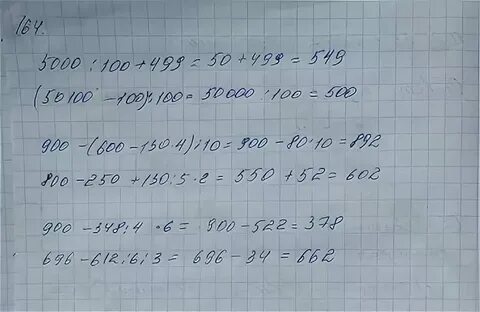 164.
5000 : 100 + 499 = 50 + 499 = 549
(50100 - 100) : 100 = 50000 : 100 = 500
900 - (600 - 130 · 4) : 10 = 900 - 80 : 10 = 892
800 - 250 + 130 : 5 · 2 = 550 + 52 = 602
900 - 348 : 4 · 6 = 900 - 522 = 378
696 - 612 : 6 : 3 = 696 - 34 = 662